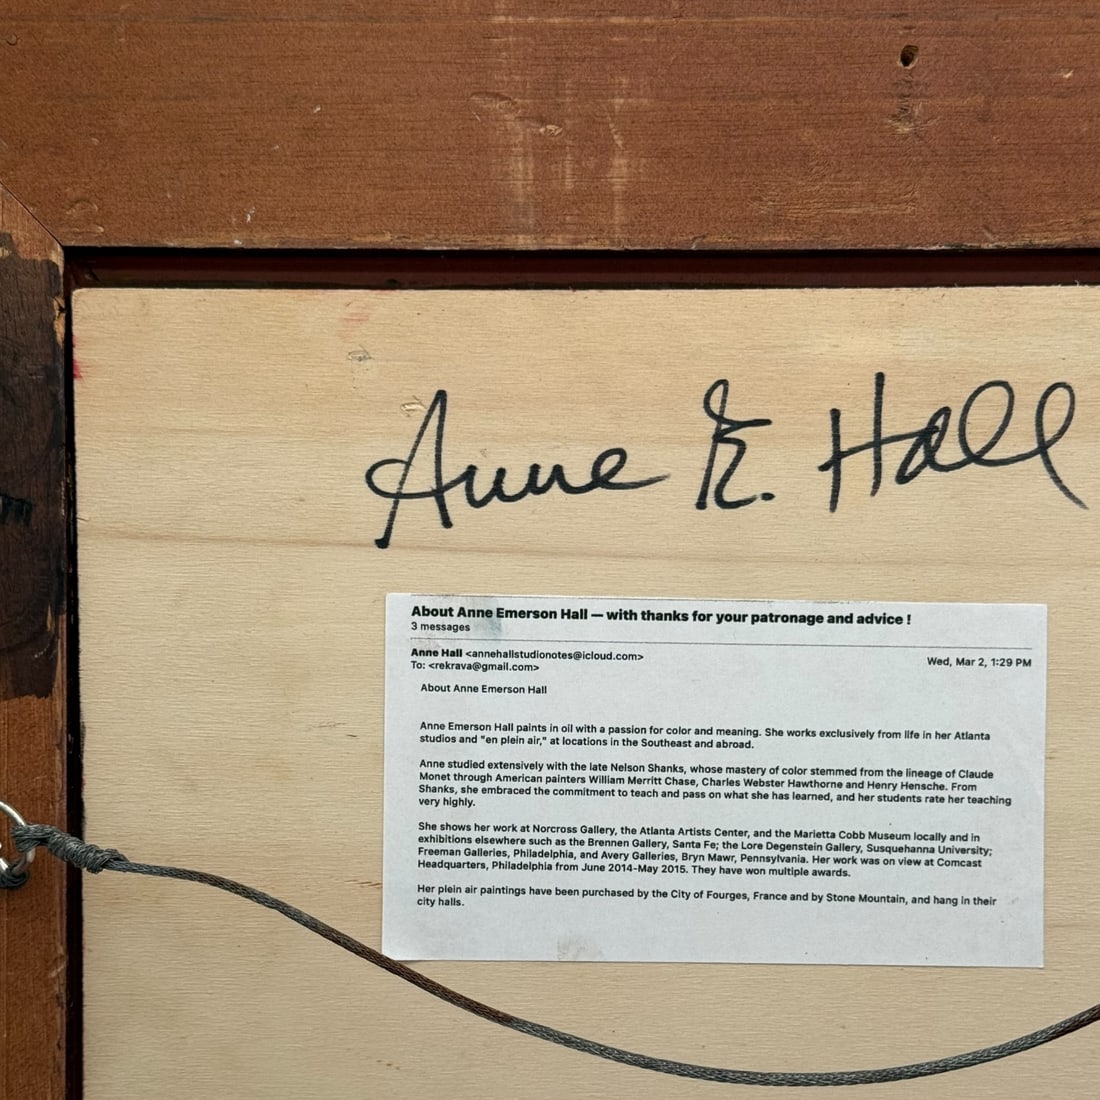 Anne E. Hall
About Anne Emerson Hall — with thanks for your patronage and advice !
3 messages
Anne Hall <annehallstudionotes@icloud.com>
Wed, Mar 2, 1:29 PM
To: <rekrava@gmail.com>
About Anne Emerson Hall
Anne Emerson Hall paints in oil with a passion for color and meaning. She works exclusively from life in her Atlanta
studios and "en plein air," at locations in the Southeast and abroad.
Anne studied extensively with the late Nelson Shanks, whose mastery of color stemmed from the lineage of Claude
Monet through American painters William Merritt Chase, Charles Webster Hawthorne and Henry Hensche. From
Shanks, she embraced the commitment to teach and pass on what she has learned, and her students rate her teaching
very highly.
She shows her work at Norcross Gallery, the Atlanta Artists Center, and the Marietta Cobb Museum locally and in
exhibitions elsewhere such as the Brennen Gallery, Santa Fe; the Lore Degenstein Gallery, Susquehanna University;
Freeman Galleries, Philadelphia, and Avery Galleries, Bryn Mawr, Pennsylvania. Her work was on view at Comcast
Headquarters, Philadelphia from June 2014-May 2015. They have won multiple awards.
Her plein air paintings have been purchased by the City of Fourges, France and by Stone Mountain, and hang in their
city halls.